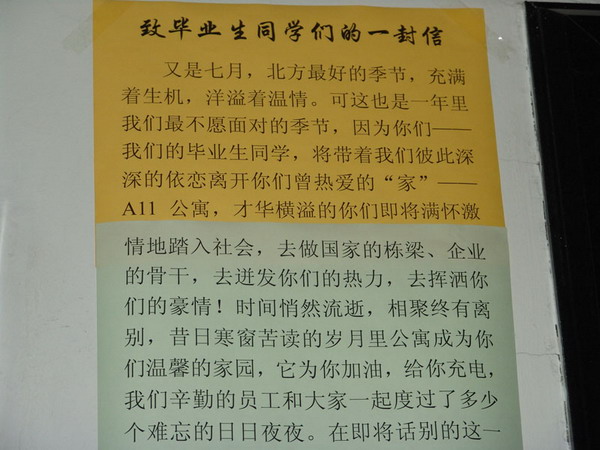 致毕业生同学们的一封信
又是七月，北方最好的季节，充满
着生机，洋溢着温情。可这也是一年里
我们最不愿面对的季节，因为你们——
我们的毕业生同学，将带着我们彼此深
深的依恋离开你们曾热爱的“家”——
A11 公寓，才华横溢的你们即将满怀激
情地踏入社会，去做国家的栋梁、企业
的骨干，去迸发你们的热力，去挥洒你
们的豪情！时间悄然流逝，相聚终有离
别，昔日寒窗苦读的岁月里公寓成为你
们温馨的家园，它为你加油，给你充电，
我们辛勤的员工和大家一起度过了多少
个难忘的日日夜夜。在即将话别的这一